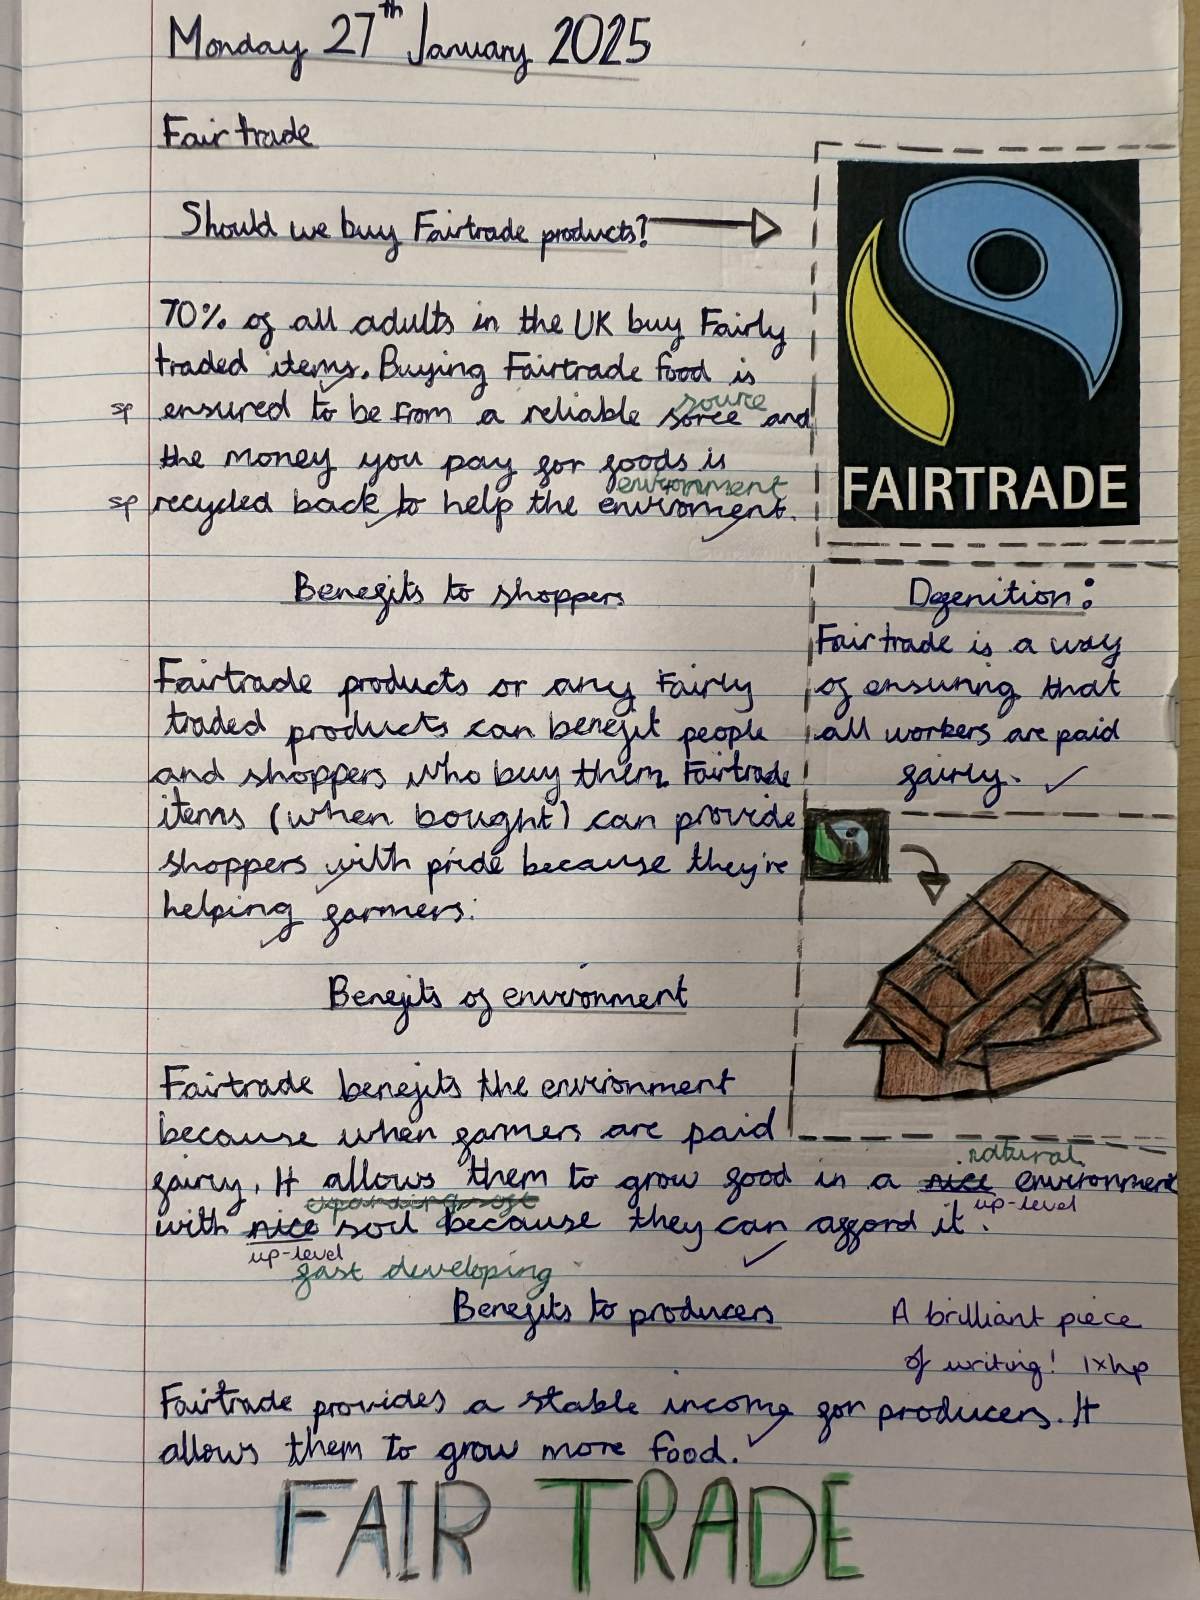 Monday 27th January 2025
Fairtrade
Should we buy Fairtrade products?
FAIRTRADE
70% of all adults in the UK buy Fairly
traded items. Buying Fairtrade food is
source
sp ensured to be from a reliable sorce and
the money you pay for goods is
environment
sp recycled back to help the enviroment.
Benefits to shoppers
Fairtrade products or any Fairly
traded products can benefit people
and shoppers who buy them. Fairtrade
items (when bought) can provide
shoppers with pride because they're
helping farmers.
Defenition:
Fairtrade is a way
of ensuring that
all workers are paid
fairly.
Benefits of environment
Fairtrade benefits the environment
because when farmers are paid
natural
fairly. It allows them to grow food in a nice environment
up-level
with nice soil because they can afford it.
up-level
fast developing
Benefits to producers
A brilliant piece
of writing! 1xhp
Fairtrade provides a stable income for producers. It
allows them to grow more food.
FAIR TRADE